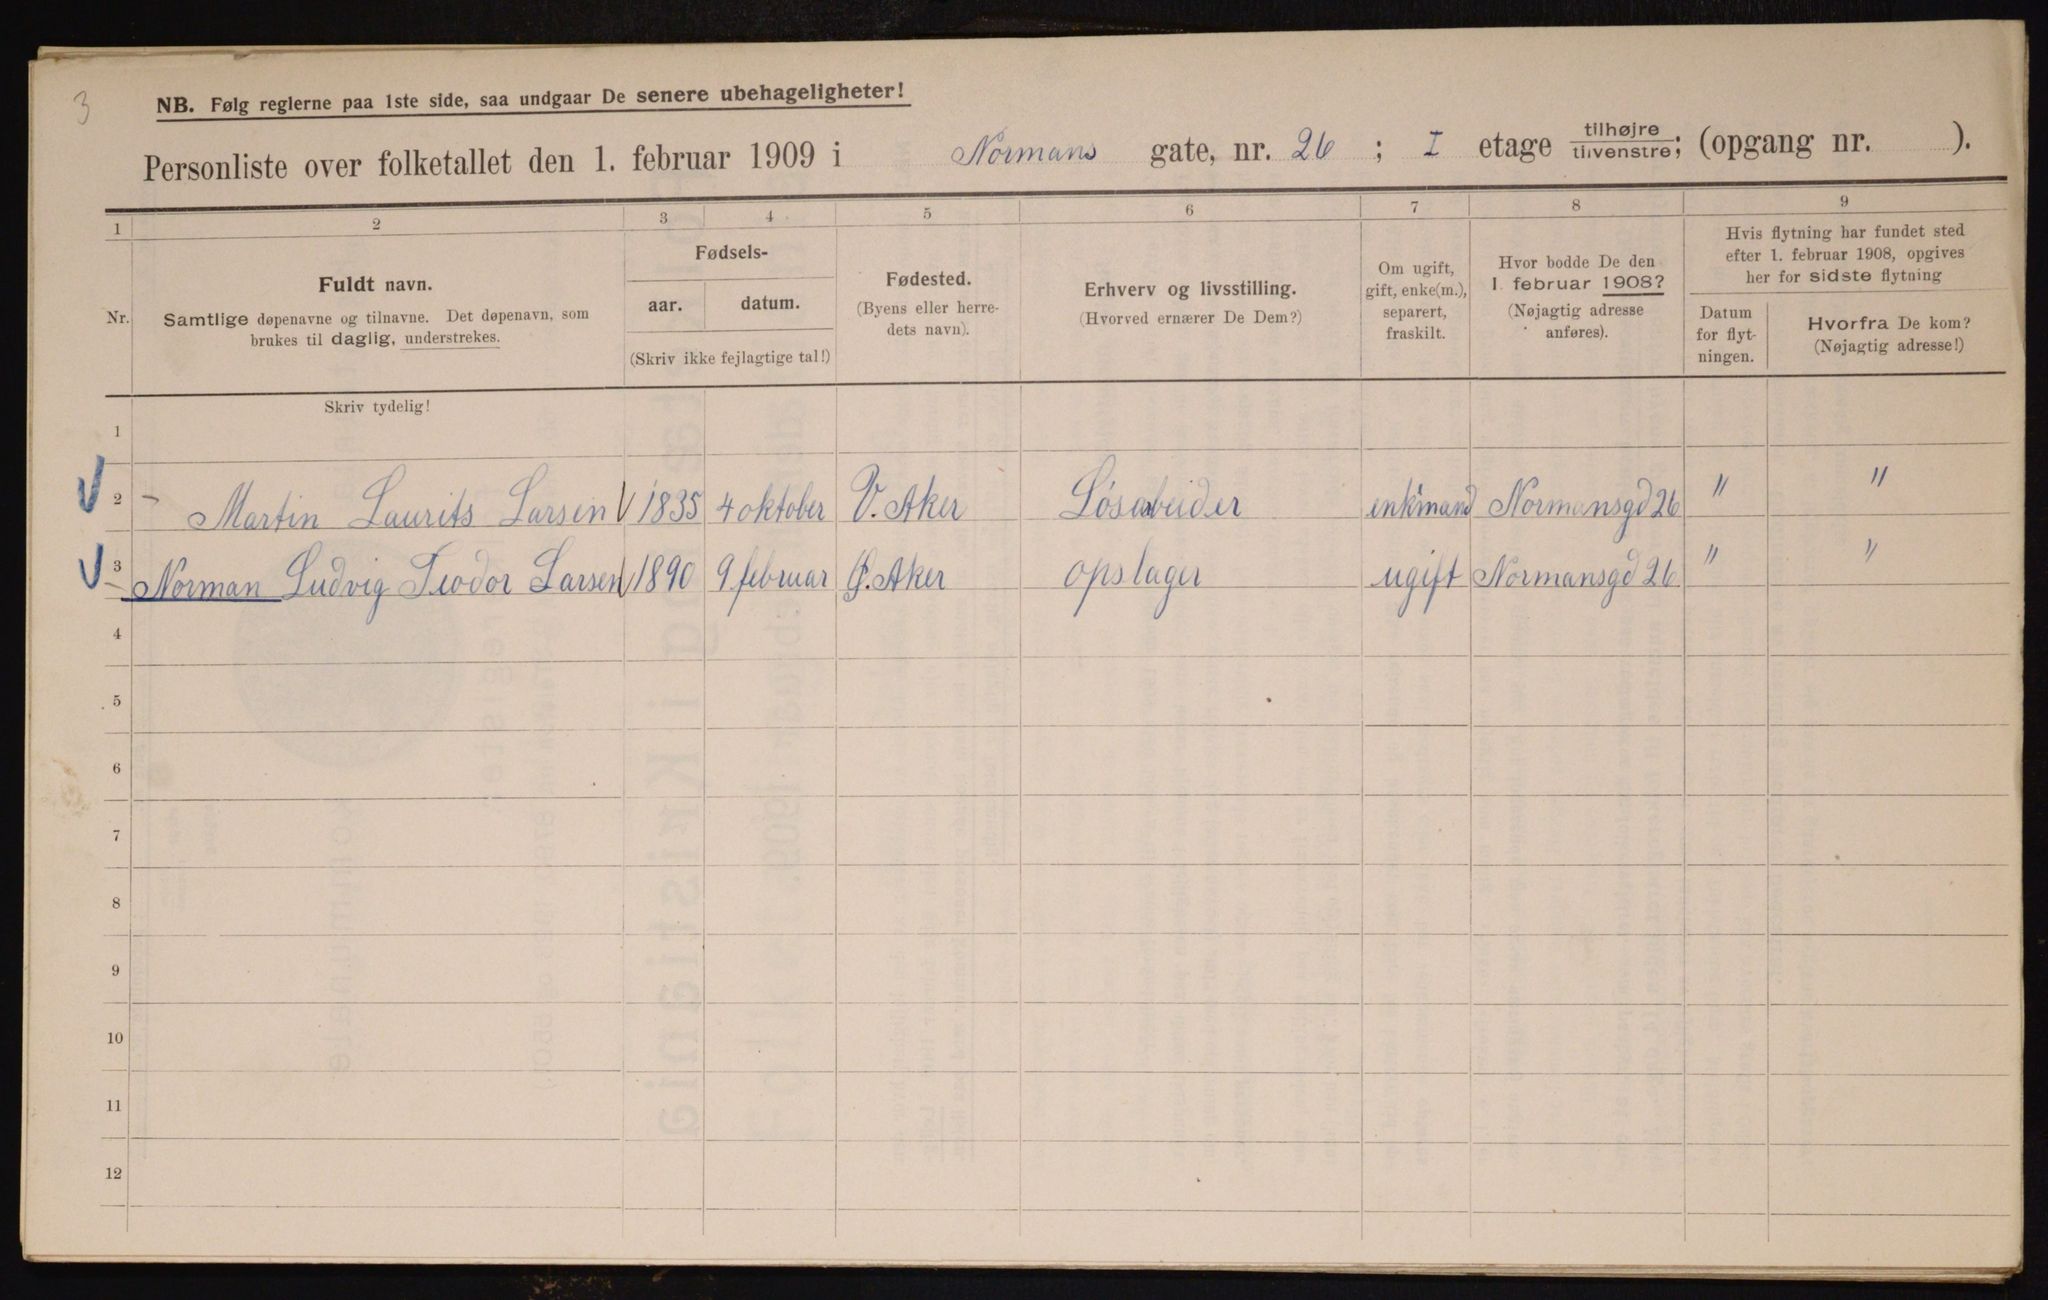 3
NB. Følg reglerne paa 1ste side, saa undgaar De senere ubehageligheter!
Personliste over folketallet den 1. februar 1909 i Normans gate, nr. 26 ; I etage tilhøjre tilvenstre; (opgang nr. ).
1 2 3 4 5 6 7 8 9
Nr.
Fuldt navn.
Samtlige døpenavne og tilnavne. Det døpenavn, som
brukes til daglig, understrekes.
Fødsels-
aar. datum.
(Skriv ikke fejlagtige tal!)
Fødested.
(Byens eller herre-
dets navn).
Erhverv og livsstilling.
(Hvorved ernærer De Dem?)
Om ugift,
gift, enke(m.),
separert,
fraskilt.
Hvor bodde De den
1. februar 1908?
(Nøjagtig adresse
anføres).
Hvis flytning har fundet sted
efter 1. februar 1908, opgives
her for sidste flytning
Datum
for flyt-
ningen.
Hvorfra De kom?
(Nøjagtig adresse!)
Skriv tydelig!
1
2 - Martin Laurits Larsen 1835 4 oktober V. Aker Løsarbeider enkmand Normansgd 26 " "
3 Norman Ludvig Teodor Larsen 1890 9 februar Ø. Aker opslager ugift Normansgd 26 " "
4
5
6
7
8
9
10
11
12